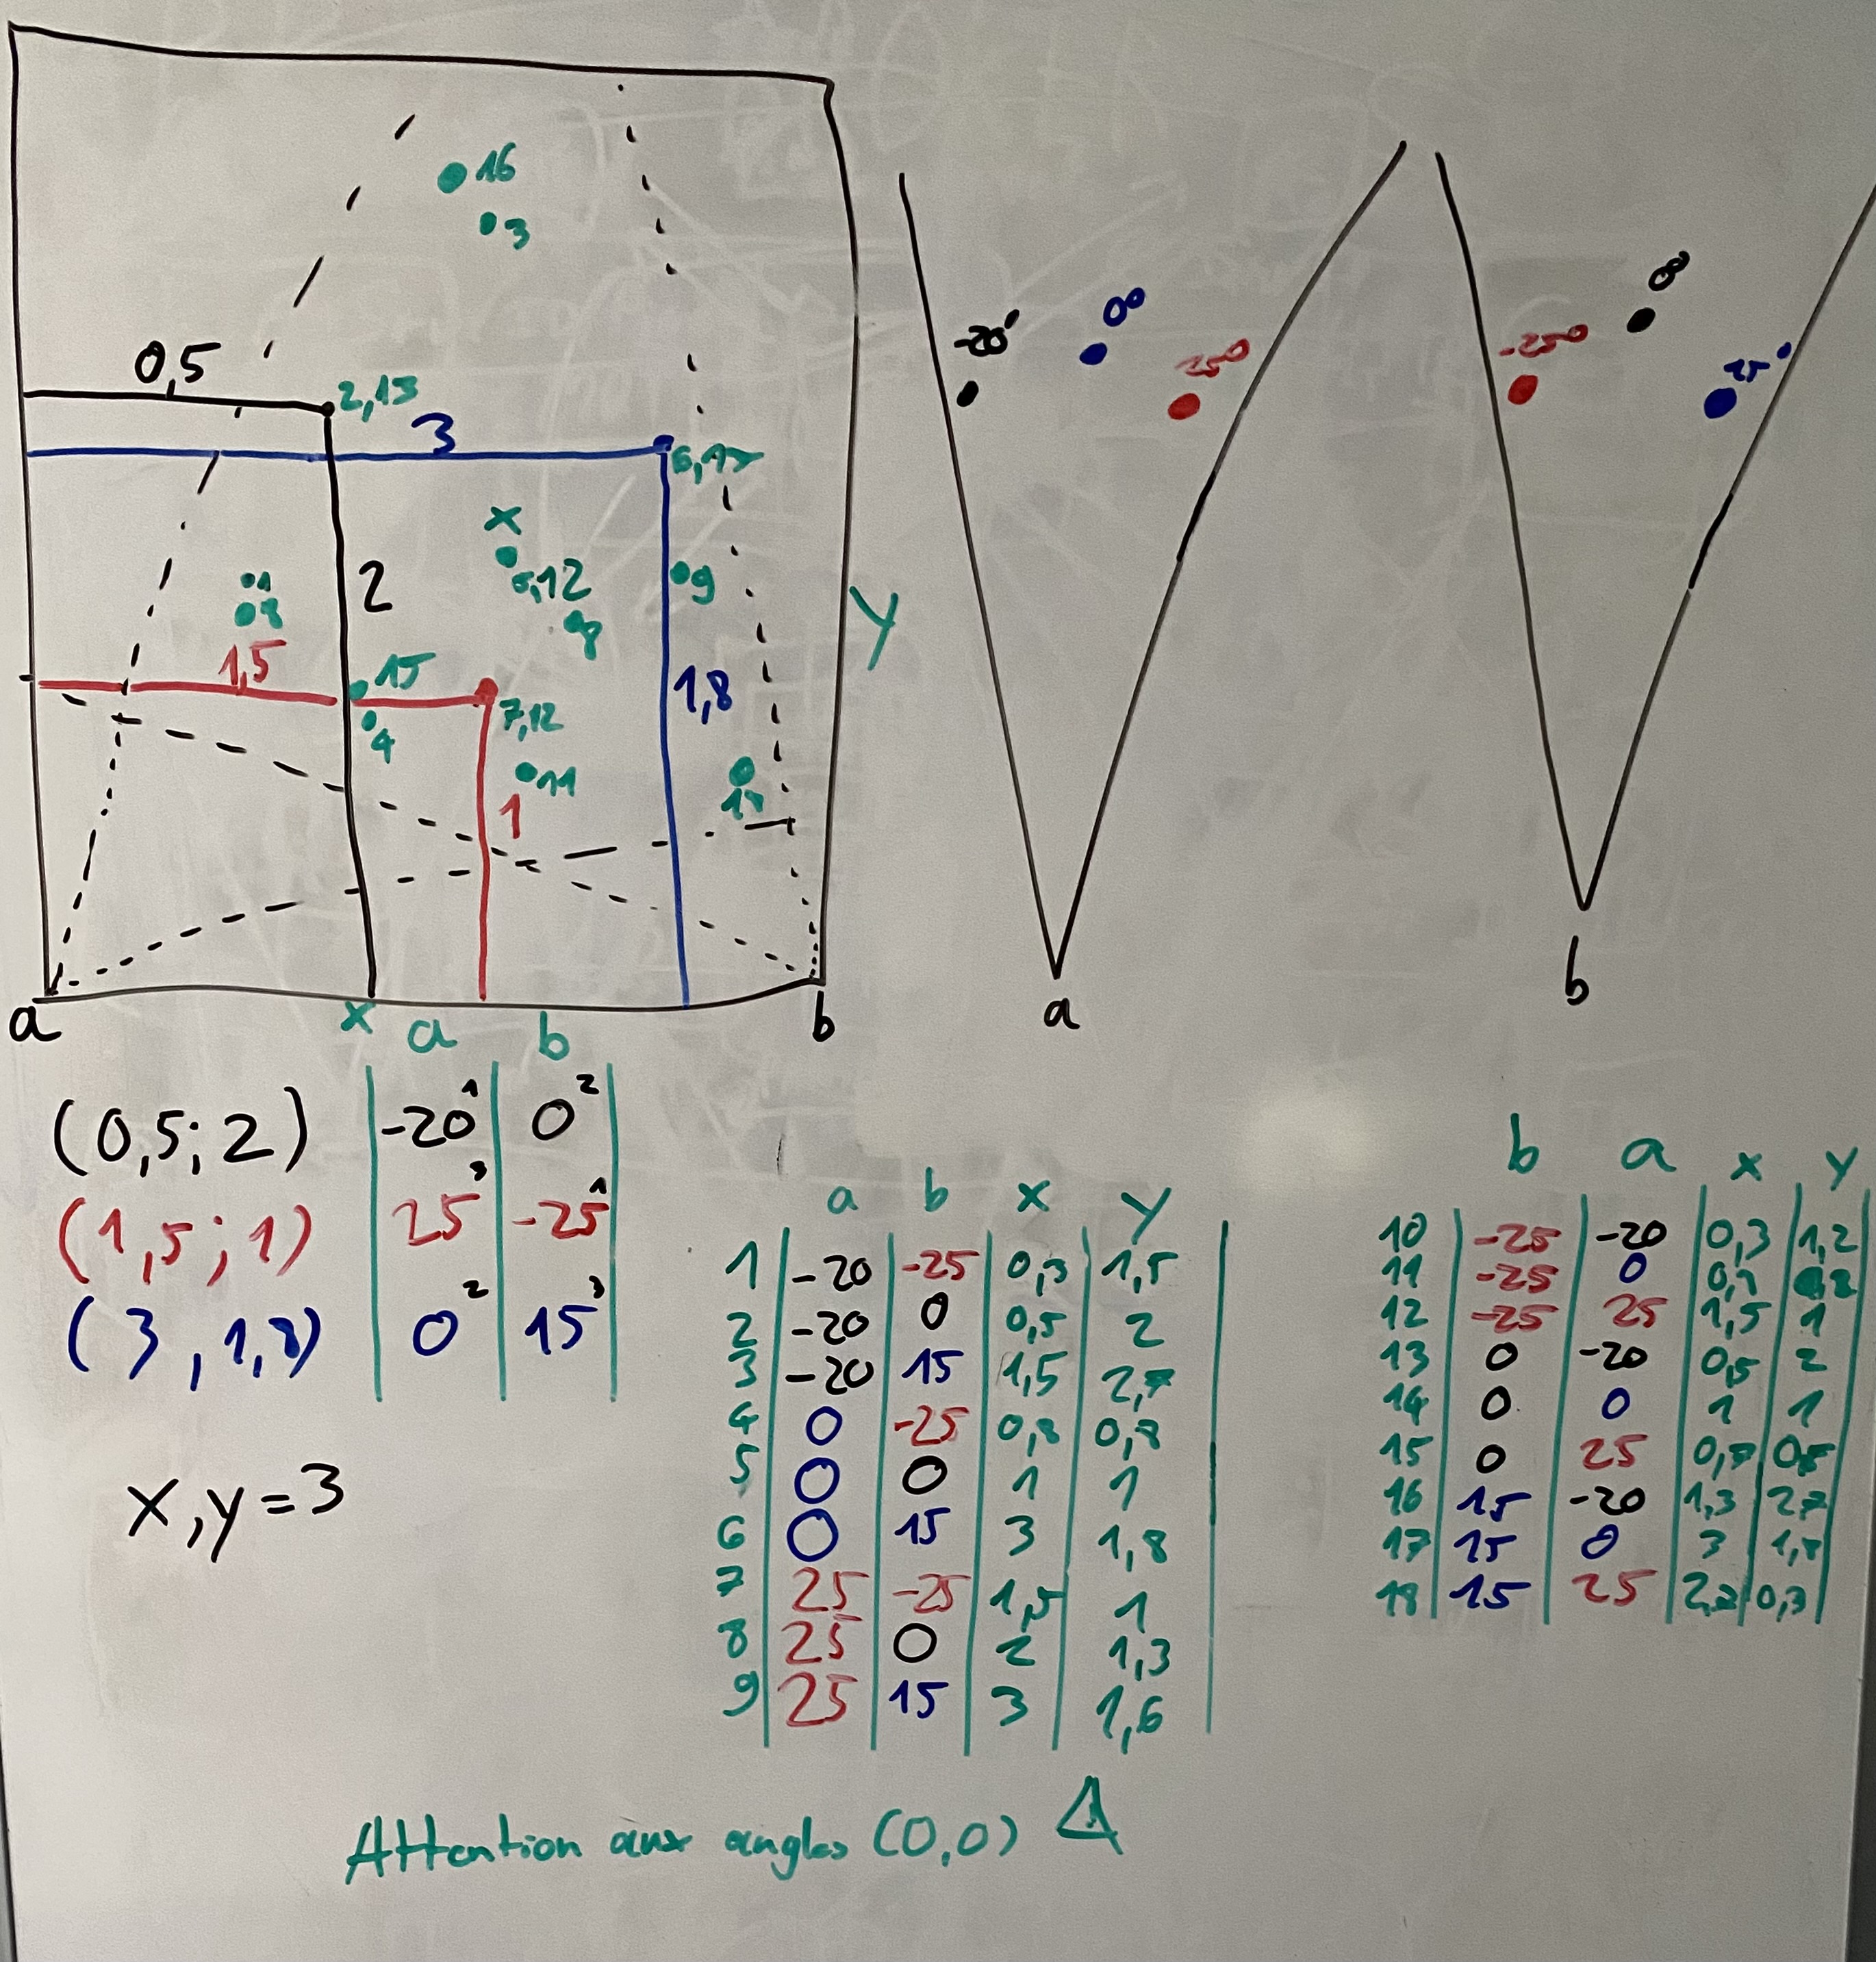 16
3
0,5
2,13
3
6,17
x
1
8
2
5,12
8
9
1,5
15
4
7,12
1,8
11
1
18
y
a
x
b
-20°
0°
25°
a
-25°
0°
15°
b
a b
(0,5; 2) -20¹ 0²
(1,5; 1) 25³ -25¹
(3, 1,8) 0² 15³
x,y=3
a b x y
1 -20 -25 0,3 1,5
2 -20 0 0,5 2
3 -20 15 1,5 2,7
4 0 -25 0,8 0,8
5 0 0 1 1
6 0 15 3 1,8
7 25 -25 1,5 1
8 25 0 2 1,3
9 25 15 3 1,6
b a x y
10 -25 -20 0,3 1,2
11 -25 0
12 -25 25 1,5 1
13 0 -20 0,5 2
14 0 0 1 1
15 0 25 0,7
16 15 -20 1,3 2,7
17 15 0 3 1,8
18 15 25 0,3
Attention aux angles (0,0) Δ